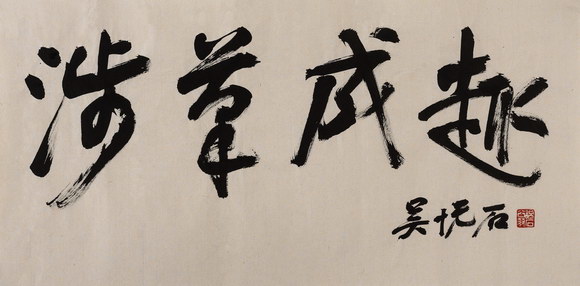 涉笔成趣
吴悦石